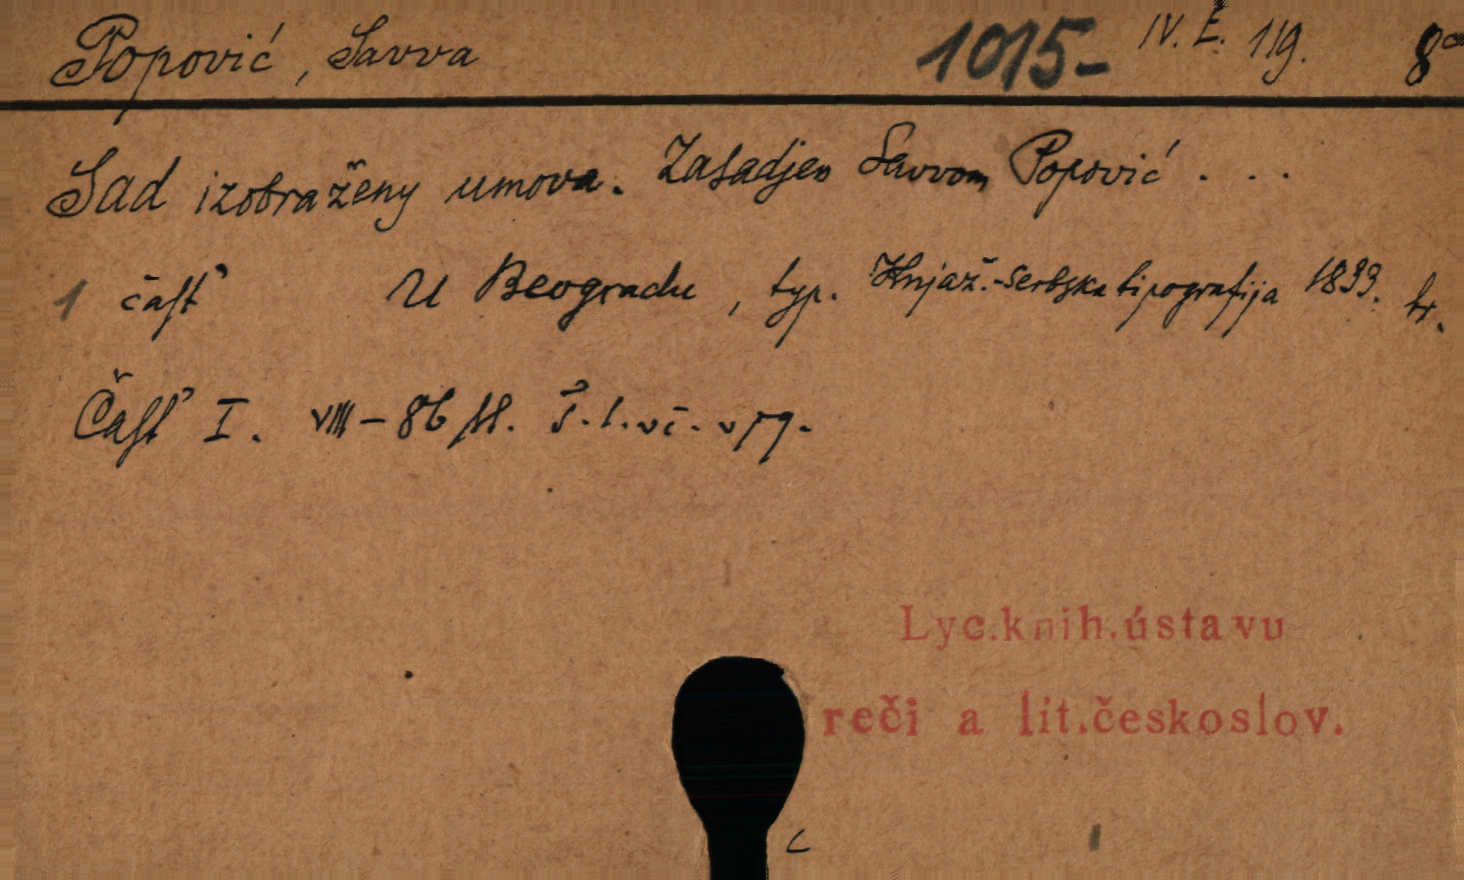 Popović, Savva 1015- IV. Č. 119. 8°
Sad izobraženy umova. Zasadjen Savvom Popović . . .
1 časť U Beogradu, typ. Knjaž.-Serbska tipografija 1833. br.
Časť I. VIII-86 str. Š. l. vč.
Lyc. knih. ústavu
reči a lit. českoslov.